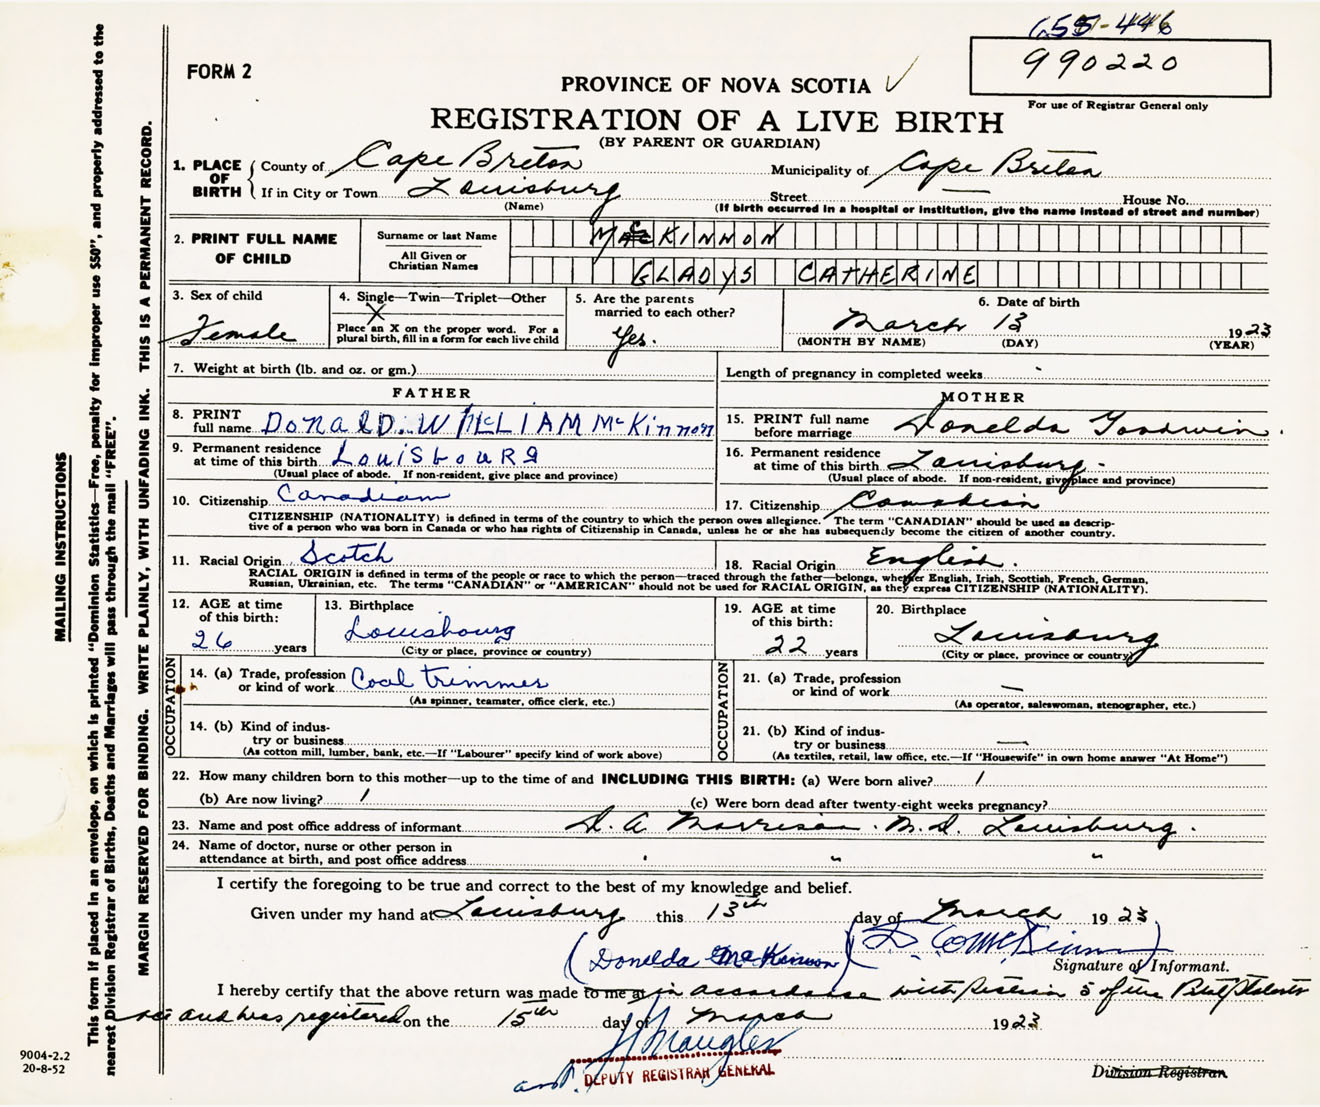 655-446
990220
For use of Registrar General only
FORM 2
PROVINCE OF NOVA SCOTIA
REGISTRATION OF A LIVE BIRTH
(BY PARENT OR GUARDIAN)
1. PLACE OF BIRTH County of Cape Breton Municipality of Cape Breton
If in City or Town Louisburg Street — House No.
(Name) (If birth occurred in a hospital or institution, give the name instead of street and number)
2. PRINT FULL NAME OF CHILD Surname or last Name McKINNON
All Given or Christian Names GLADYS CATHERINE
3. Sex of child Female
4. Single—Twin—Triplet—Other
X
Place an X on the proper word. For a plural birth, fill in a form for each live child
5. Are the parents married to each other? Yes.
6. Date of birth
March 13 1923
(MONTH BY NAME) (DAY) (YEAR)
7. Weight at birth (lb. and oz. or gm.) Length of pregnancy in completed weeks
FATHER
8. PRINT full name DONALD. WILLIAM McKinnon
9. Permanent residence at time of this birth LouisbouRg
(Usual place of abode. If non-resident, give place and province)
10. Citizenship Canadian
MOTHER
15. PRINT full name before marriage Donelda Goodwin.
16. Permanent residence at time of this birth Louisburg.
(Usual place of abode. If non-resident, give place and province)
17. Citizenship Canadian
CITIZENSHIP (NATIONALITY) is defined in terms of the country to which the person owes allegience. The term "CANADIAN" should be used as descrip-
tive of a person who was born in Canada or who has rights of Citizenship in Canada, unless he or she has subsequently become the citizen of another country.
11. Racial Origin Scotch 18. Racial Origin English.
RACIAL ORIGIN is defined in terms of the people or race to which the person—traced through the father—belongs, whether English, Irish, Scottish, French, German,
Russian, Ukrainian, etc. The terms "CANADIAN" or "AMERICAN" should not be used for RACIAL ORIGIN, as they express CITIZENSHIP (NATIONALITY).
12. AGE at time of this birth: 26 years
13. Birthplace Louisbourg
(City or place, province or country)
19. AGE at time of this birth: 22 years
20. Birthplace Louisburg
(City or place, province or country)
OCCUPATION
14. (a) Trade, profession or kind of work Coal trimmer
(As spinner, teamster, office clerk, etc.)
14. (b) Kind of indus-
try or business
(As cotton mill, lumber, bank, etc.—If "Labourer" specify kind of work above)
OCCUPATION
21. (a) Trade, profession or kind of work —
(As operator, saleswoman, stenographer, etc.)
21. (b) Kind of indus-
try or business —
(As textiles, retail, law office, etc.—If "Housewife" in own home answer "At Home")
22. How many children born to this mother—up to the time of and INCLUDING THIS BIRTH: (a) Were born alive? 1
(b) Are now living? 1 (c) Were born dead after twenty-eight weeks pregnancy?
23. Name and post office address of informant D. A. Morrison. M.D. Louisburg.
24. Name of doctor, nurse or other person in
attendance at birth, and post office address " " "
I certify the foregoing to be true and correct to the best of my knowledge and belief.
Given under my hand at Louisburg this 13th day of March 1923
(Donelda McKinnon) (D. W McKinnon)
Signature of Informant.
I hereby certify that the above return was made to me at in accordance with Section 5 of the Vital Statistics
Act and was registered on the 15th day of March 1923
DEPUTY REGISTRAR GENERAL
Division Registrar
9004-2.2
20-8-52
MAILING INSTRUCTIONS
This form if placed in an envelope, on which is printed "Dominion Statistics—Free, penalty for improper use $50", and properly addressed to the
nearest Division Registrar of Births, Deaths and Marriages will pass through the mail "FREE".
MARGIN RESERVED FOR BINDING. WRITE PLAINLY, WITH UNFADING INK. THIS IS A PERMANENT RECORD.